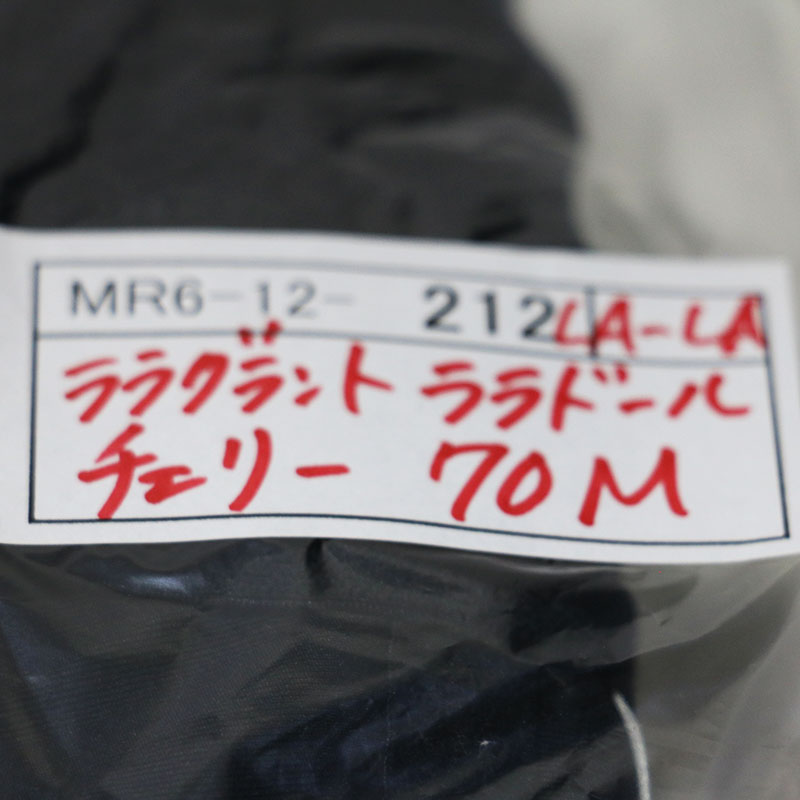 MR6-12- 212 LA-LA
ララグラント ララドール
チェリー 70M